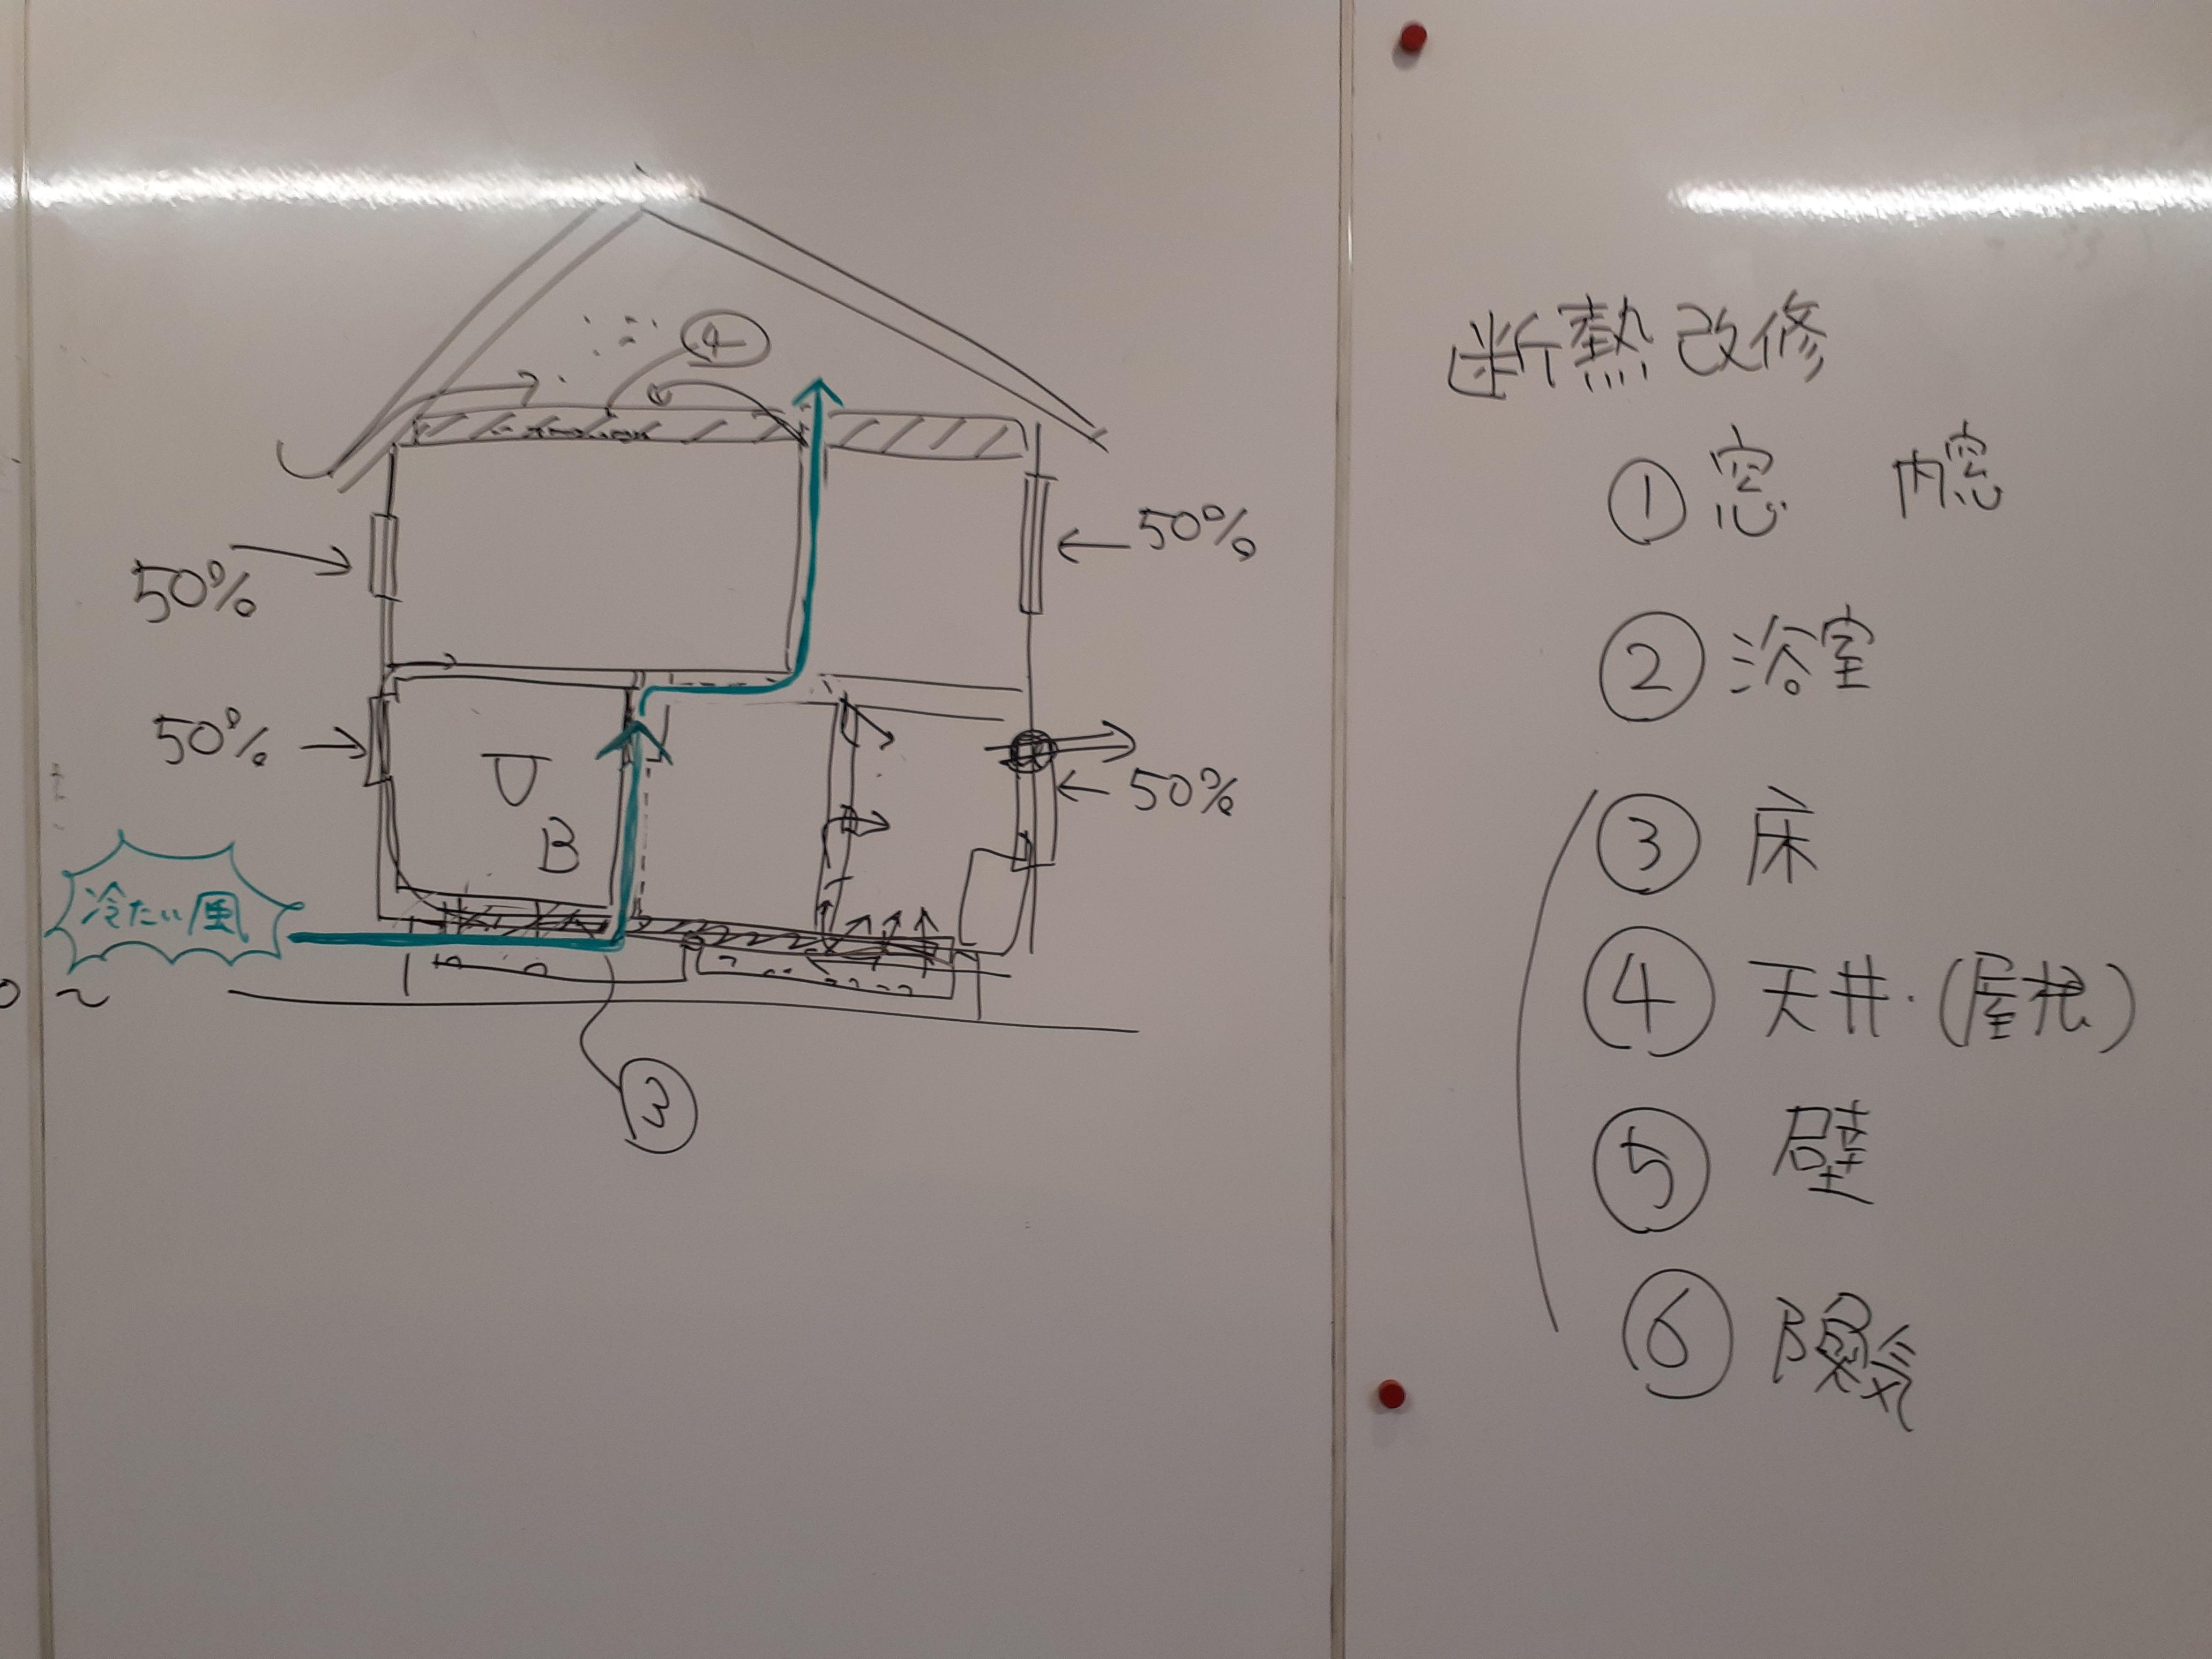 ④
50%
50%
50%
50%
B
冷たい風
~
③
断熱改修
① 窓 内窓
② 浴室
③ 床
④ 天井・(屋根)
⑤ 壁
⑥